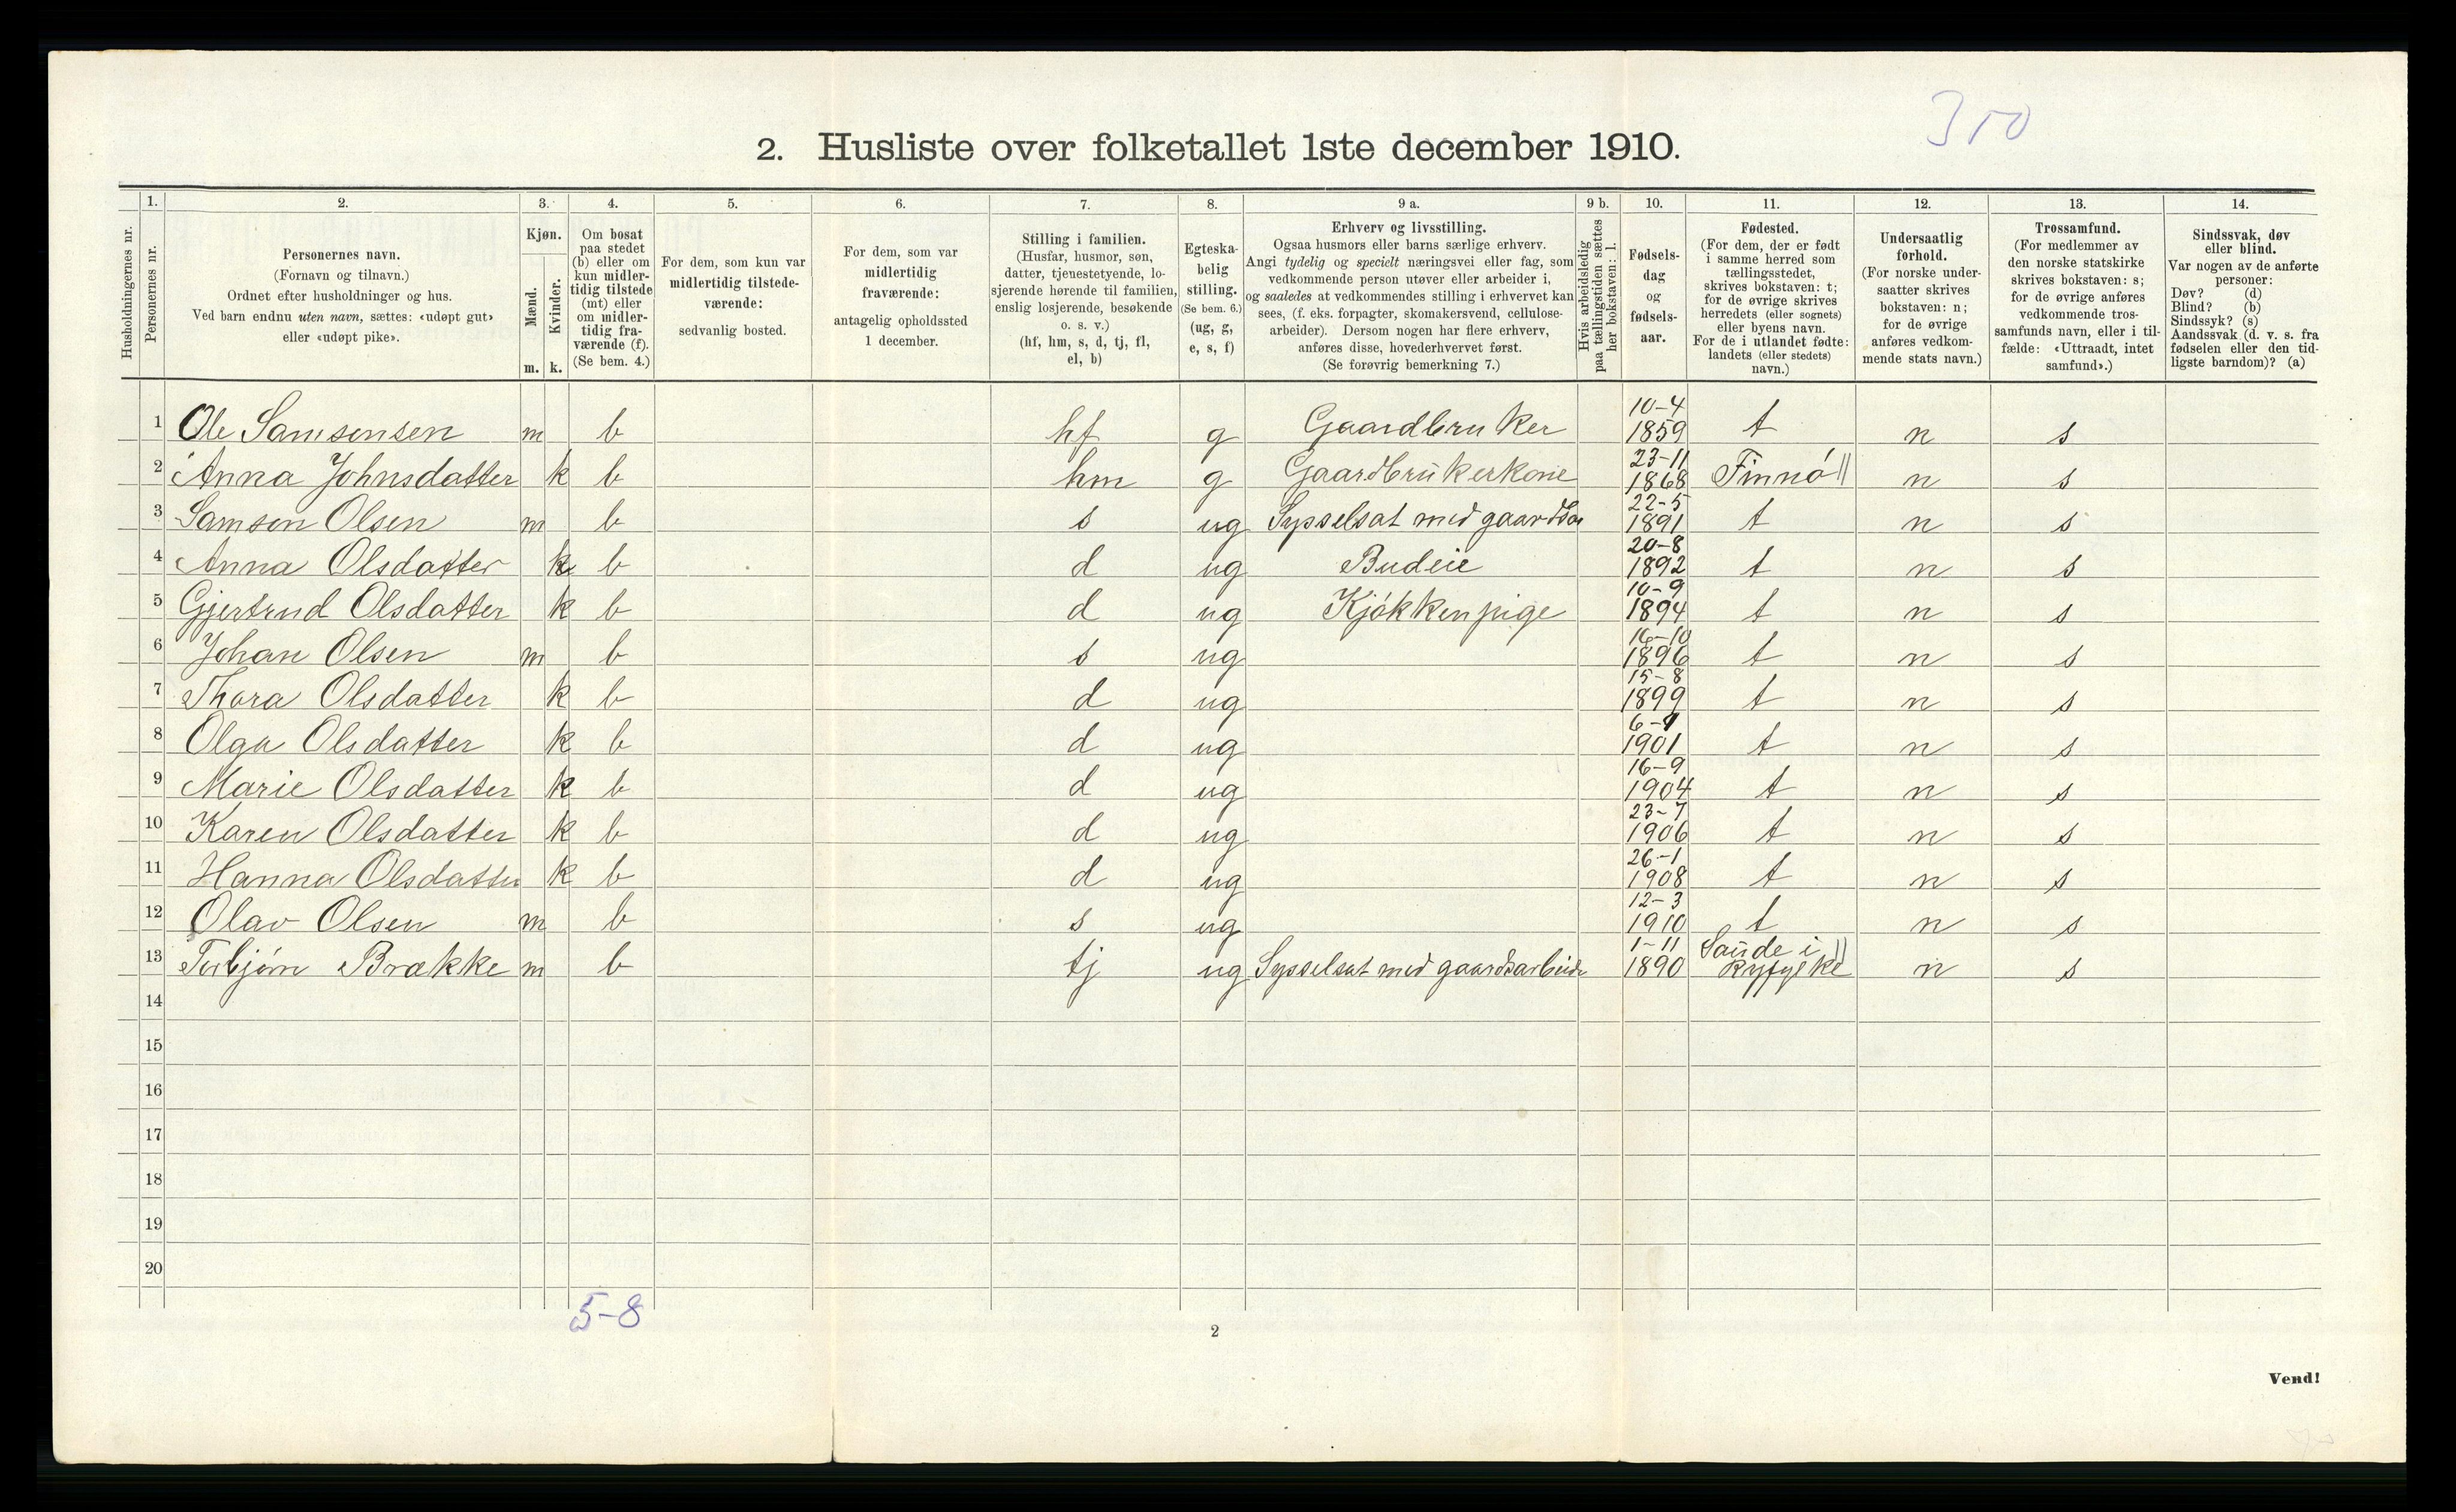 310
2. Husliste over folketallet 1ste december 1910.
Husholdningernes nr.
1.
Personernes nr.
2.
Personernes navn.
(Fornavn og tilnavn.)
Ordnet efter husholdninger og hus.
Ved barn endnu uten navn, sættes: «udøpt gut»
eller «udøpt pike».
3.
Kjøn.
Mænd.
Kvinder.
m. k.
4.
Om bosat
paa stedet
(b) eller om
kun midler-
tidig tilstede
(mt) eller
om midler-
tidig fra-
værende (f).
(Se bem. 4.)
5.
For dem, som kun var
midlertidig tilstede-
værende:
sedvanlig bosted.
6.
For dem, som var
midlertidig
fraværende:
antagelig opholdssted
1 december.
7.
Stilling i familien.
(Husfar, husmor, søn,
datter, tjenestetyende, lo-
sjerende hørende til familien,
enslig losjerende, besøkende
o. s. v.)
(hf, hm, s, d, tj, fl,
el, b)
8.
Egteska-
belig
stilling.
(Se bem. 6.)
(ug, g,
e, s, f)
9 a.
Erhverv og livsstilling.
Ogsaa husmors eller barns særlige erhverv.
Angi tydelig og specielt næringsvei eller fag, som
vedkommende person utøver eller arbeider i,
og saaledes at vedkommendes stilling i erhvervet kan
sees, (f. eks. forpagter, skomakersvend, cellulose-
arbeider). Dersom nogen har flere erhverv,
anføres disse, hovederhvervet først.
(Se forøvrig bemerkning 7.)
9 b.
Hvis arbeidsledig
paa tællingstiden sættes
her bokstaven: l.
10.
Fødsels-
dag
og
fødsels-
aar.
11.
Fødested.
(For dem, der er født
i samme herred som
tællingsstedet,
skrives bokstaven: t;
for de øvrige skrives
herredets (eller sognets)
eller byens navn.
For de i utlandet fødte:
landets (eller stedets)
navn.)
12.
Undersaatlig
forhold.
(For norske under-
saatter skrives
bokstaven: n;
for de øvrige
anføres vedkom-
mende stats navn.)
13.
Trossamfund.
(For medlemmer av
den norske statskirke
skrives bokstaven: s;
for de øvrige anføres
vedkommende tros-
samfunds navn, eller i til-
fælde: «Uttraadt, intet
samfund».)
14.
Sindssvak, døv
eller blind.
Var nogen av de anførte
personer:
Døv? (d)
Blind? (b)
Sindssyk? (s)
Aandssvak (d. v. s. fra
fødselen eller den tid-
ligste barndom)? (a)
1 Ole Samsonsen m b hf g Gaardbruker 10-4 1859 t n s
2 Anna Johnsdatter k b hm g Gaardbrukerkone 23-11 1868 Finnö n s
3 Samson Olsen m b s ug Sysselsat med gaardsar 22-5 1891 t n s
4 Anna Olsdatter k b d ug Budeie 20-8 1892 t n s
5 Gjertrud Olsdatter k b d ug Kjøkkenpige 10-9 1894 t n s
6 Johan Olsen m b s ug 16-10 1896 t n s
7 Thora Olsdatter k b d ug 15-8 1899 t n s
8 Olga Olsdatter k b d ug 1901 t n s
9 Marie Olsdatter k b d ug 16-9 1904 t n s
10 Karen Olsdatter k b d ug 23-7 1906 t n s
11 Hanna Olsdatter k b d ug 26-1 1908 t n s
12 Olav Olsen m b s ug 12-3 1910 t n s
13 Torbjørn Brække m b tj ug Sysselsat med gaardsarbeide 1-11 1890 Saude i Ryfylke n s
14
15
16
17
18
19
20
5-8
2
Vend!